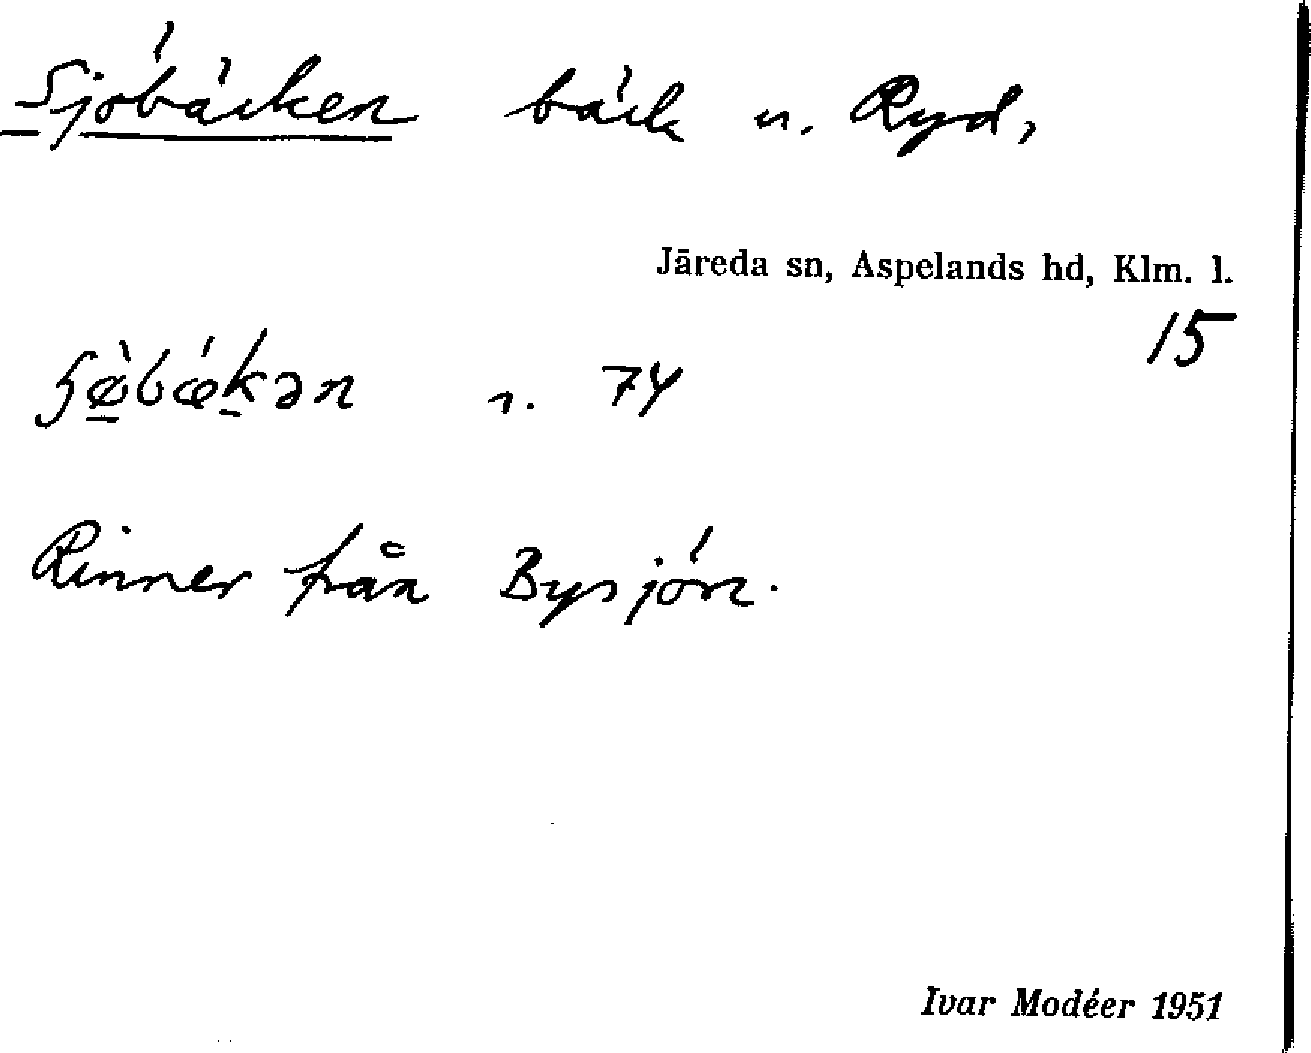 Sjöbäcken bäck n. Ryd,
Järeda sn, Aspelands hd, Klm. l.
15
n. 74
Rinner från Bysjön.
Ivar Modéer 1951